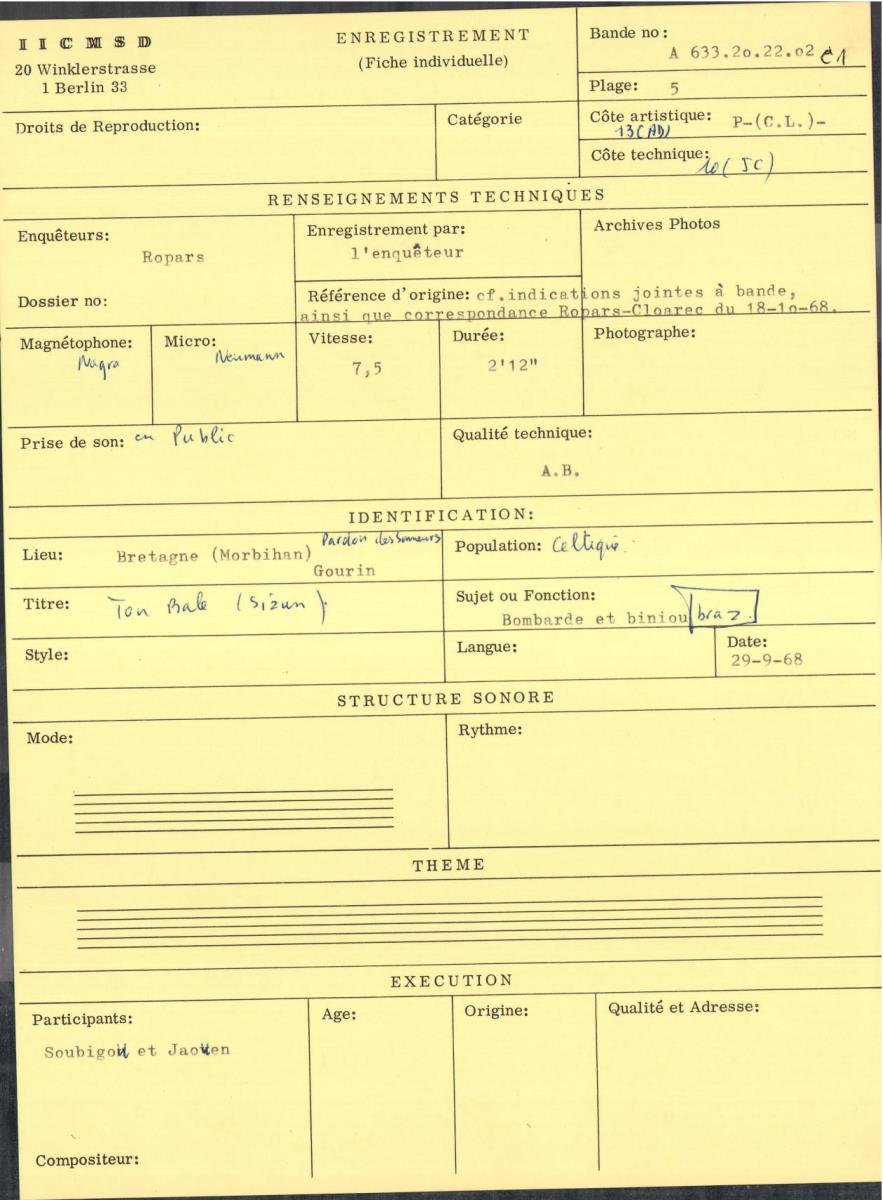 I I C M S D
20 Winklerstrasse
1 Berlin 33
ENREGISTREMENT
(Fiche individuelle)
Bande no:
A 633.2o.22.o2 C1
Plage: 5
Droits de Reproduction:
Catégorie
Côte artistique: P-(C.L.)-
13(AD)
Côte technique: 10 (JC)
RENSEIGNEMENTS TECHNIQUES
Enquêteurs:
Ropars
Dossier no:
Enregistrement par:
l'enquêteur
Archives Photos
Référence d'origine: cf.indications jointes à bande,
ainsi que correspondance Ropars-Cloarec du 18-1o-68.
Magnétophone:
Nagra
Micro:
Neumann
Vitesse:
7,5
Durée:
2'12"
Photographe:
Prise de son: en Public
Qualité technique:
A.B.
IDENTIFICATION:
Lieu: Bretagne (Morbihan) Pardon des Sonneurs
Gourin
Population: Celtique.
Titre: Ton Bale (Sizun).
Sujet ou Fonction:
Bombarde et biniou braz.
Style:
Langue:
Date:
29-9-68
STRUCTURE SONORE
Mode:
Rythme:
THEME
EXECUTION
Participants:
Soubigou et Jaouen
Age:
Origine:
Qualité et Adresse:
Compositeur: